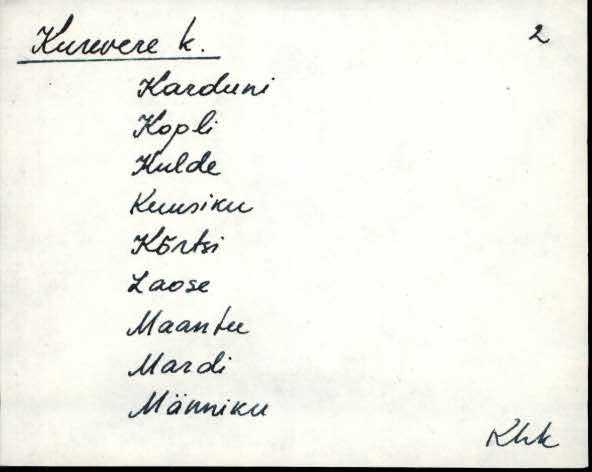 Kurevere k. 2
Karduni
Kopli
Kulde
Kuusiku
Kõrtsi
Laose
Maantee
Mardi
Männiku
Khk